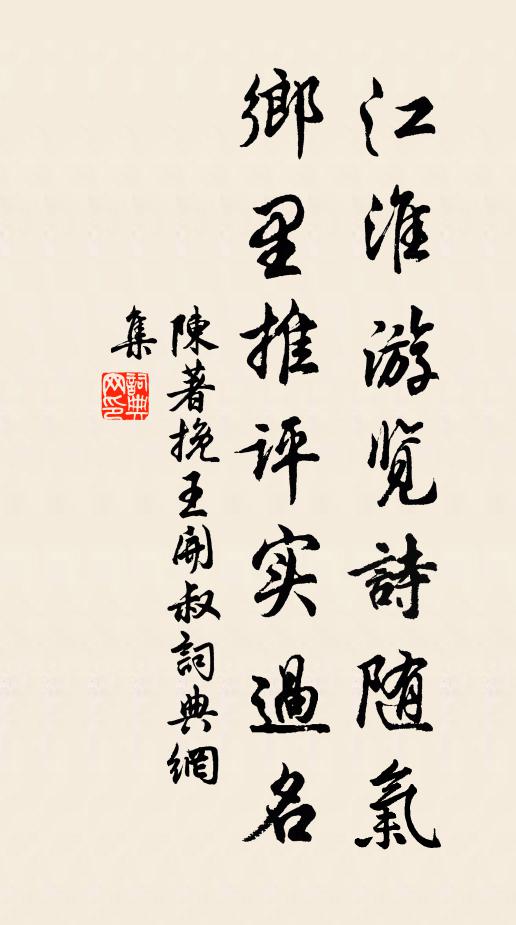 江淮游览詩随氣
鄉里推评实過名
陳著挽王開叔詞典網
集
詞典网印